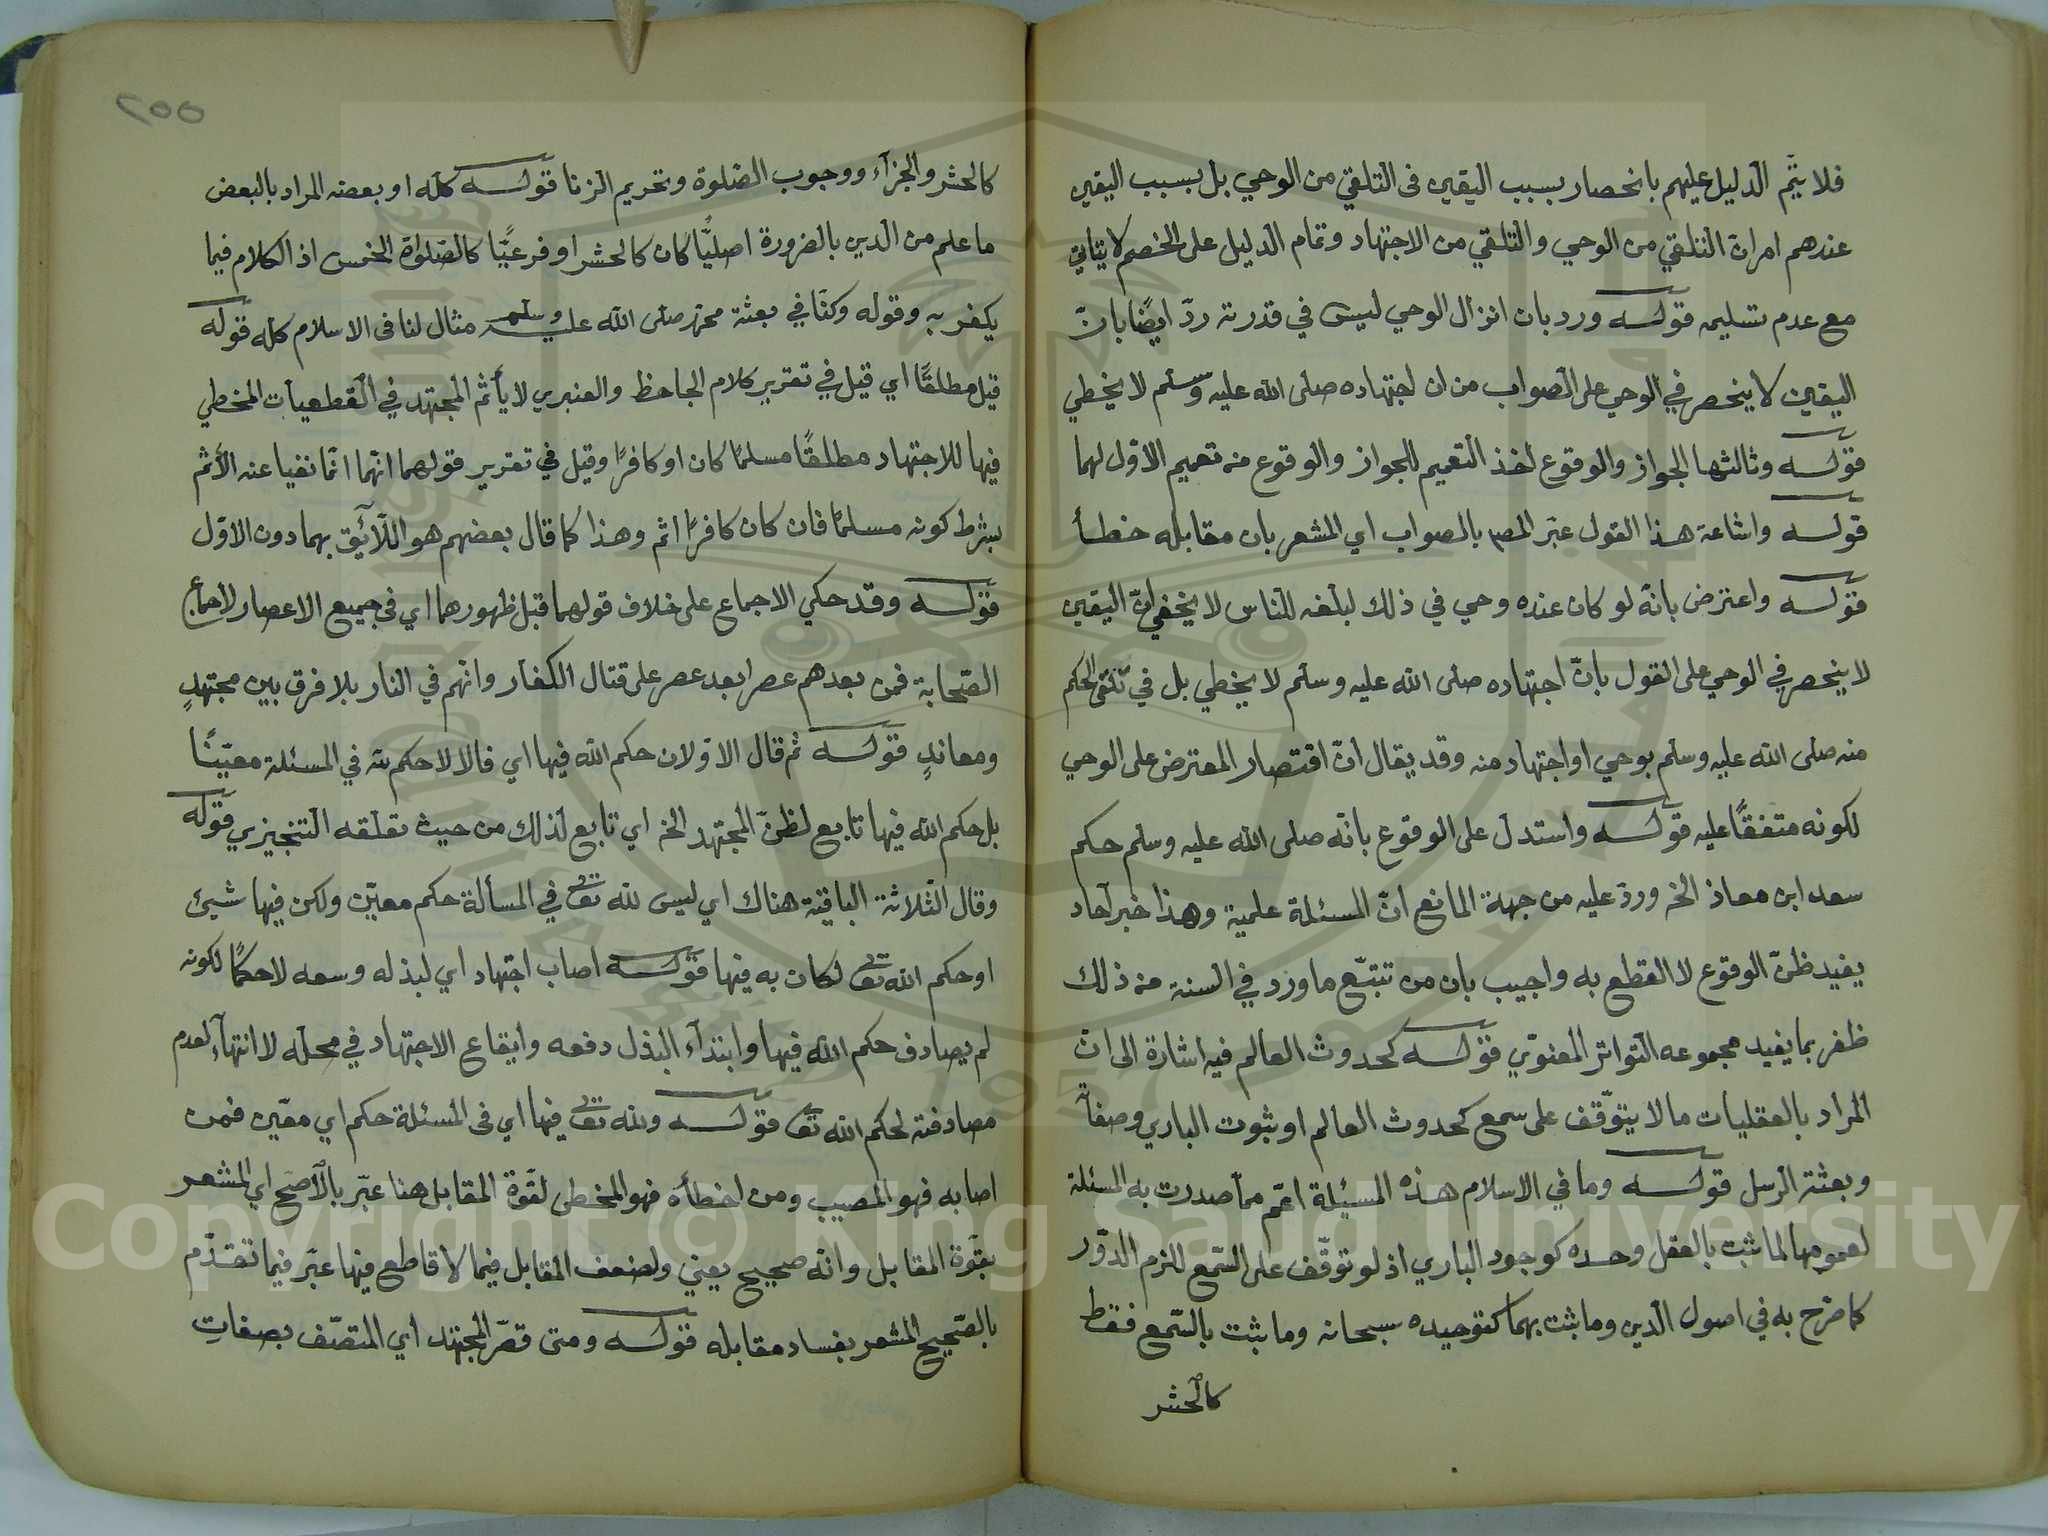 فلا يتم الدليل عليهم بانحصار بسبب اليقين فى التلقي من الوحي بل بسبب اليقين
عندهم امران التلقي من الوحي والتلقي من الاجتهاد وتمام الدليل على الخصم لا يتاتى
مع عدم تسليمه قوله ورد بان انزال الوحي ليس في قدرته ردّ ايضًا بانّ
اليقين لا ينحصر في الوحي على الصواب من ان اجتهاده صلى الله عليه وسلم لا يخطي
قوله وثالثها الجواز والوقوع اخذ التعميم للجواز والوقوع من تعميم الاول لهما
قوله واشاعة هذا القول عبّر المصـ بالصواب اي المشعر بان مقابله خطأ
قوله واعترض بانّه لو كان عنده وحي في ذلك لبلغه للناس لا يخفى انّ اليقين
لا ينحصر في الوحي على القول بانّ اجتهاده صلى الله عليه وسلم لا يخطي بل في تلقى الحكم
منه صلى الله عليه وسلم بوحي او اجتهاد منه وقد يقال انّ اقتصار المعترض على الوحي
لكونه متفقًا عليه قوله واستدل على الوقوع بانّه صلى الله عليه وسلم حكم
سعد ابن معاذ الخ وردّ عليه من جهة المانع انّ المسئلة علمية وهذا خبر آحاد
يفيد ظنّ الوقوع لا القطع به واجيب بان من تتبّع ما ورد في السنة من ذلك
ظفر بما يفيد مجموعه التواتر المعنوّي قوله كحدوث العالم فيه اشارة الى انّ
المراد بالعقليات ما لا يتوّقف على سمع كحدوث العالم او ثبوت الباري وصفاته
وبعثة الرسل قوله وما في الاسلام هذه المسيئلة اعّم ممّا صدرت به المسئلة
لعمومها لما ثبت بالعقل وحده كوجود الباري اذ لو توقّف على السّمع للزم الدّور
كما صرّح به في اصول الدين وما ثبت بهما كتوحيده سبحانه وما ثبت بالسّمع فقط
كالحشر
٢٥٥
كالحشر والجزآء ووجوب الصّلوة وتحريم الزنا قوله كله او بعضه المراد بالبعض
ما علم من الدين بالضرورة اصليًّا كان كالحشر او فرعيًّا كالصّلوة الخمس اذ الكلام فيما
يكفر به وقوله وكنا في بعثة محمد صلى الله عليه وسلم مثال لنافى الاسلام كله قوله
قيل مطلقًا اي قيل في تقرير كلام الجاحظ والعنبري لا يأثم المجتهد في القطعيات المخطي
فيها للاجتهاد مطلقًا مسلمًا كان او كافرًا وقيل في تقرير قولهما انّهما انّما نفيا عنه الأثم
بشرط كونه مسلمًا فان كان كافرًا اثم وهذا كما قال بعضهم هو اللّآئق بهما دون الاوّل
قوله وقد حكي الاجماع على خلاف قولهما قبل ظهورهما اي فى جميع الاعصار لاجماع
الصّحابة فمن بعدهم عصرا بعد عصر على قتال الكفار وانهم في النار بلا فرق بين مجتهدٍ
ومعاندٍ قوله ثم قال الاوّلان حكم الله فيها اي قالا لا حكم لله في المسئلة معيّنًا
بل حكم الله فيها تابع لظنّ المجتهد الخ اي تابع لذلك من حيث تعلّقه التنجيزي قوله
وقال الثّلاثة الباقية هناك اي ليس لله تعا في المسألة حكم معيّن ولكن فيها شيئ
او حكم الله تعا لكان به فيها قوله اصاب اجتهاد اي لبذله وسعه لا حكمًا لكونه
لم يصادف حكم الله فيها وابتدآء البذل دفعه وايقاع الاجتهاد في محلّه لا انتهآء لعدم
مصادفته لحكم الله تعا قوله ولله تعا فيها اي فى المسئلة حكم اي معّين فمن
اصابه فهو المصيب ومن اخطأه فهو المخطى لقوّة المقابل هنا عبّر بالأصّح اي المشعر
بقوّة المقابل وانّه صحيح يعني ولضعف المقابل فيما لا قاطع فيها عبّر فيما تقدّم
بالصّحيح المشعر بفساد مقابله قوله ومتى قصّر المجتهد اي المتصّف بصفات
Copyright © King Saud University
1957